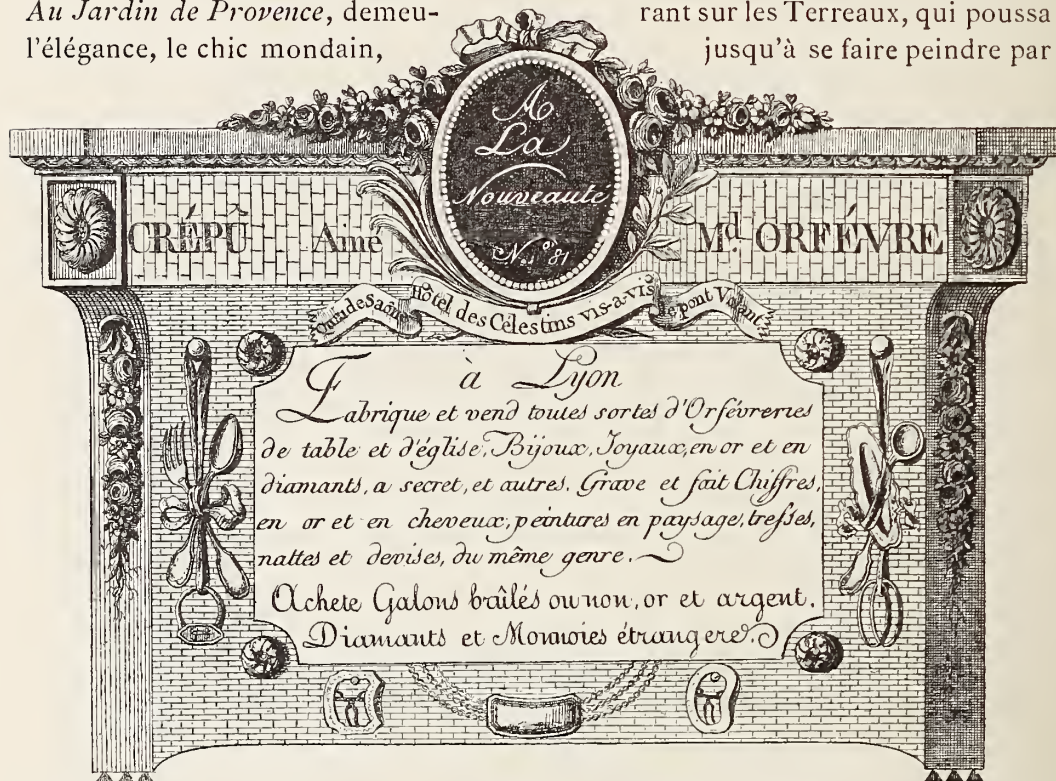 Au Jardin de Provence, demeu-
l'élégance, le chic mondain,
rant sur les Terreaux, qui poussa
jusqu'à se faire peindre par
A
La
Nouveauté
N.º 81
CRÉPÛ Ainé
Md ORFÉVRE
Quai de Saône Hôtel des Célestins vis-à-vis le pont Volant
à Lyon
Fabrique et vend toutes sortes d'Orfévreries
de table et d'église, Bijoux, Joyaux, en or et en
diamants, a secret, et autres. Grave et fait Chiffres,
en or et en cheveux, peintures en paysage, tresses,
nattes et devises, du même genre.
Achete Galons brûlés ou non, or et argent.
Diamants et Monnoies étrangeres.